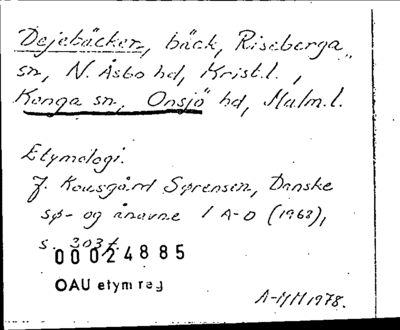 Dejebäcken, bäck, Riseberga
sn, N. Åsbo hd, Krist.l.,
Konga sn, Onsjö hd, Malm.l.
Etymologi.
J. Kousgård Sørensen, Danske
sø- og ånavne 1 A-D (1968),
s. 303f.
00024885
OAU etym reg
A-MH 1978.